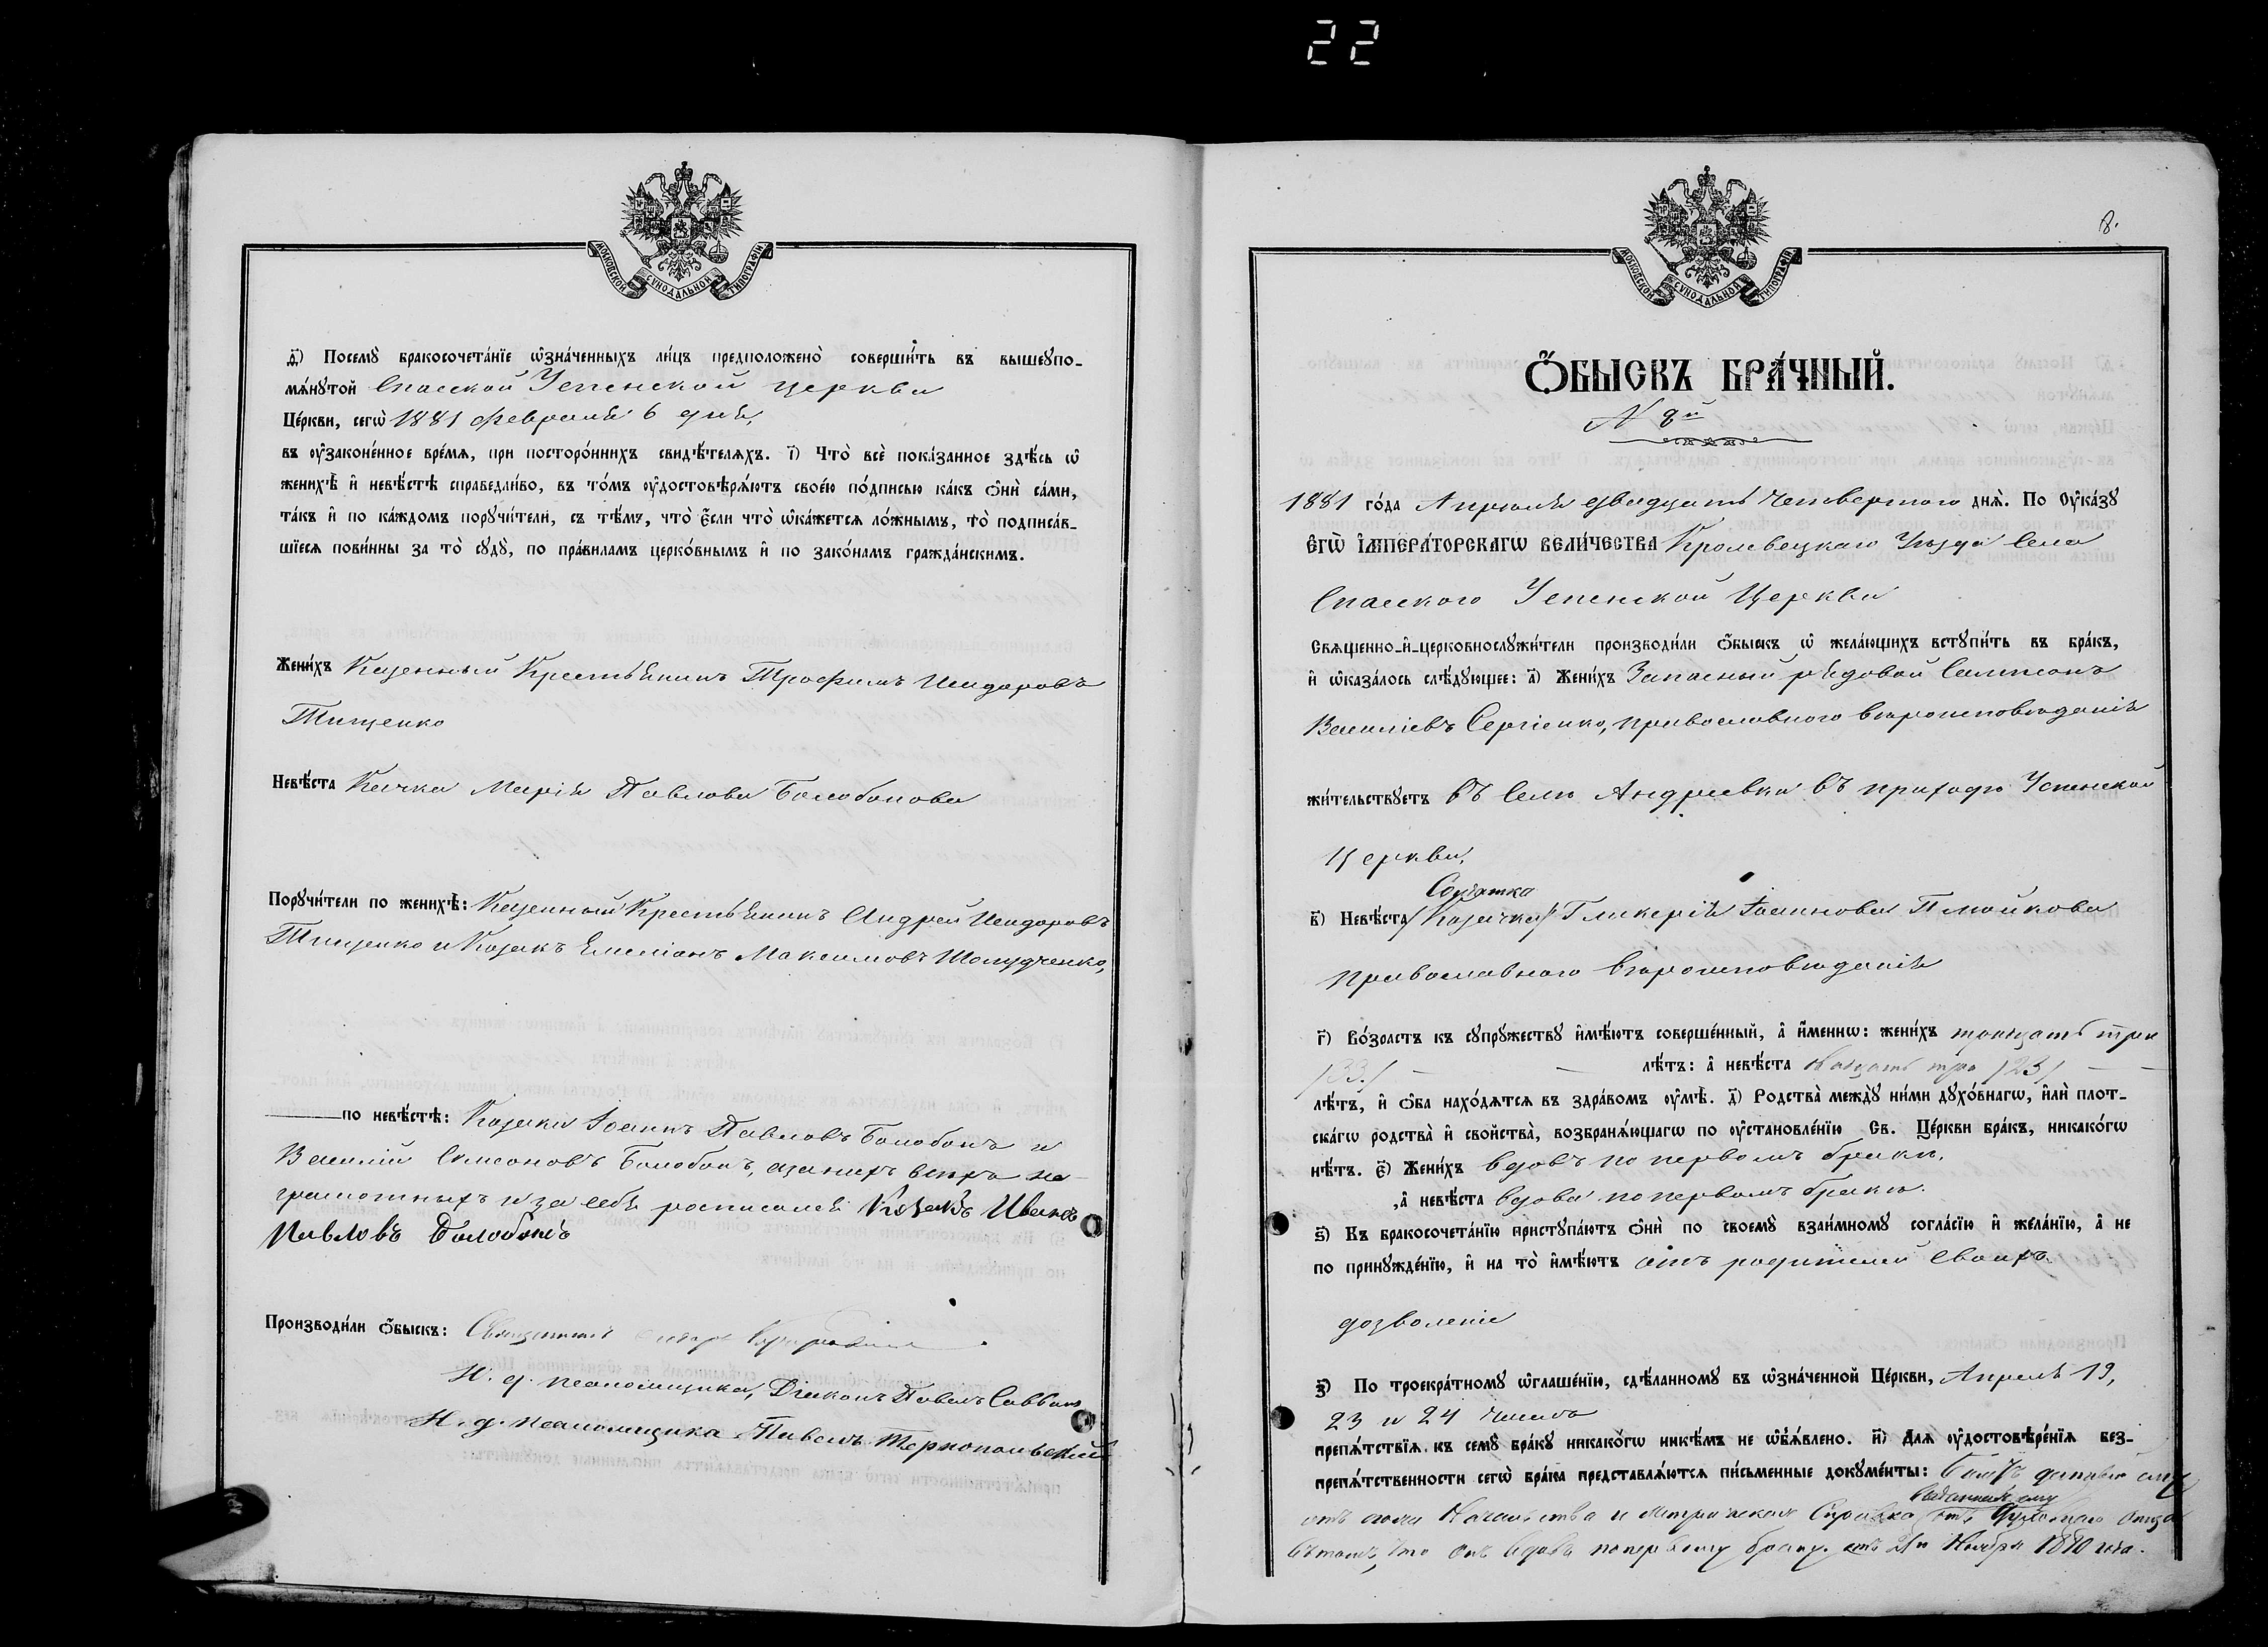 22
МОСКОВСКОЙ СѴНОДАЛЬНОЙ ТИПОГРАФІИ
д҃і) Посемꙋ̀ бракосочета́нїе ѡ҆зна́ченныхъ ли́цъ предположено̀ соверши́ть въ вышеꙋпо-
мѧ́нꙋтой Спасской Успенской церкви
Це́ркви, сегѡ̀ 1881 февраля 6 дня,
въ ᲂу҆законе́нное вре́мѧ, при посторо́ннихъ свидѣ́телѧхъ. і҃) Что̀ всѐ пока́занное здѣ́сь ѡ҆
женихѣ̀ и҆ невѣ́стѣ справедли́во, въ то́мъ ᲂу҆достовѣрѧ́ютъ свое́ю по́дписью ка́къ ѻ҆нѝ са́ми,
та́къ и҆ по ка́ждомъ порꙋчи́тели, съ тѣ́мъ, что̀ є҆́сли что̀ ѡ҆ка́жетсѧ ло́жнымъ, то̀ подписа́в-
шїесѧ пови́нны за то̀ сꙋдꙋ̀, по пра́виламъ церко́внымъ и҆ по зако́намъ гражда́нскимъ.
Жени́хъ Казенный Крестьянинъ Трофимъ Исидоровъ
Тищенко
Невѣ́ста Качка Марія Павлова Болобонова
Порꙋчи́тели по женихѣ̀: Казенный Крестьянинъ Андрей Исидоровъ
Тищенко и Козакъ Емеліанъ Максимовъ Шолудченко,
по невѣ́стѣ: Козаки Іоаннъ Павловъ Болобонъ и
Василій Симеоновъ Болобонъ, а за нихъ всѣхъ не-
грамотныхъ и за себя росписался Козакъ Иванъ
Павловъ Болобонъ
Производи́ли ѻ҆́быскъ: Священникъ
И. д. псаломщика, Діаконъ Павелъ Саввинъ
И. д. псаломщика Павелъ Тернопольскій
8.
МОСКОВСКОЙ СѴНОДАЛЬНОЙ ТИПОГРАФІИ
Ѻ҆́БЫСКЪ БРА́ЧНЫЙ.
N 8й
1881 го́да Апрѣля двадцать четвертого днѧ̀. По Оу҆ка́зꙋ
Є҆ГѠ̀ И҆МПЕРА́ТОРСКАГѠ ВЕЛИ́ЧЕСТВА Кролевецкаго Уѣзда Села
Спасского Успенской Церкви
Свѧщенно-и҆-церковнослꙋжи́тели производи́ли ѻ҆́быскъ ѡ҆ жела́ющихъ встꙋпи́ть въ бра́къ,
и҆ ѡ҆каза́лось слѣ́дꙋющее: а҃) Жени́хъ Запасный рядовой Сампсонъ
Василіевъ Сергіенко, православного вѣроисповѣданія
жи́тельствꙋетъ въ Селѣ Андреевки въ приходѣ Успенской
Церкви,
Солдатка
в҃) Невѣ́ста /Козачка/ Гликерія Іоаннова Плойкова
православного вѣроисповѣданія
г҃) Во́зрастъ къ сꙋпрꙋжествꙋ и҆мѣ́ютъ соверше́нный, а҆ и҆́меннѡ: жени́хъ тридцать три
/33./ — — лѣ́тъ: а҆ невѣ́ста двадцать три /23/ — —
лѣ́тъ, и҆ ѻ҆́ба нахо́дѧтсѧ въ здра́вомъ ᲂу҆мѣ̀. д҃) Родства̀ междꙋ̀ ни́ми дꙋхо́внагѡ, и҆лѝ плот-
ска́гѡ родства̀ и҆ сво́йства, возбранѧ́ющагѡ по ᲂу҆становле́нїю Св. Це́ркви бра́къ, никако́гѡ
нѣ́тъ. є҃) Жени́хъ вдовъ по первомъ бракѣ.
, а҆ невѣ́ста вдова по первомъ бракѣ.
ѕ҃) Къ бракосочета́нїю пристꙋпа́ютъ ѻ҆нѝ по своемꙋ̀ взаи́мномꙋ согла́сїю и҆ жела́нїю, а҆ не
по принꙋжде́нїю, и҆ на то̀ и҆мѣ́ютъ отъ родителей своихъ
дозволеніе
з҃) По троекра́тномꙋ ѡ҆глаше́нїю, сдѣ́ланномꙋ въ ѡ҆зна́ченной Це́ркви, Апрелѣ 19,
23 и 24 числъ
препѧ́тствїѧ къ семꙋ̀ бра́кꙋ никако́гѡ никѣ́мъ не ѡ҆б̾ѧ́влено. и҃) Длѧ ᲂу҆достовѣре́нїѧ без-
препѧ́тственности сегѡ̀ бра́ка представлѧ́ютсѧ пи́сьменные докꙋме́нты: билетъ данный ему
выданная ему
отъ Начальства и Метрическая Справка отъ Духовнаго отца
въ томъ, что онъ вдовъ по первому браку. отъ 21 Ноября 1880 года.